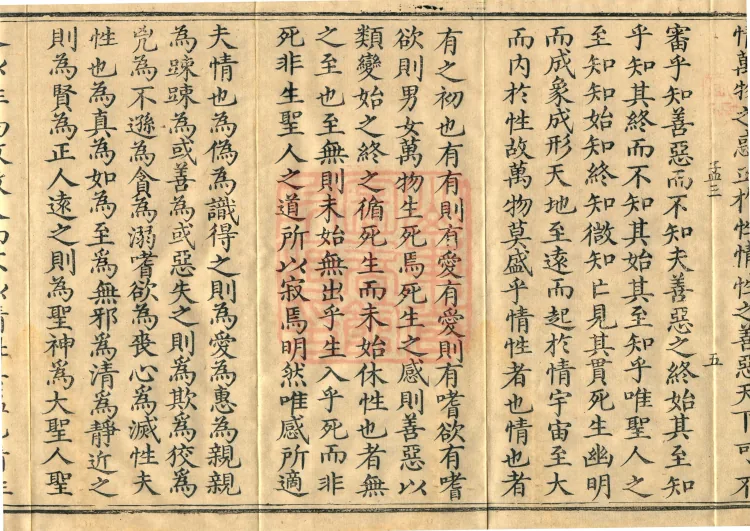 情萬物之惑正於性情性之善惡天下可不
孟三
五
審乎知善惡而不知夫善惡之終始其至知
乎知其終而不知其始其至知乎唯聖人之
至知知始知終知微知亡見其貫死生幽明
而成象成形天地至遠而起於情宇宙至大
而內於性故萬物莫盛乎情性者也情也者
有之初也有有則有愛有愛則有嗜欲有嗜
欲則男女萬物生死焉死生之感則善惡以
類變始之終之循死生而未始休性也者無
之至也至無則未始無出乎生入乎死而非
死非生聖人之道所以寂焉明然唯感所適
夫情也為偽為識得之則為愛為惠為親親
為踈踈為或善為或惡失之則為欺為狡為
兇為不遜為貪為溺嗜欲為喪心為滅性夫
性也為真為如為至為無邪為清為靜近之
則為賢為正人遠之則為聖神為大聖人聖